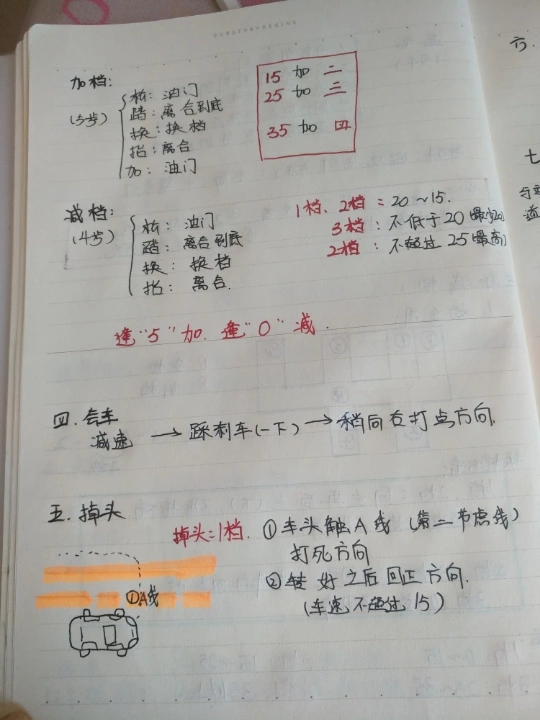 加档:
(5步)
松: 油门
踏: 离合到底
换: 换档
抬: 离合
加: 油门
15 加 二
25 加 三
35 加 四
减档:
(4步)
松: 油门
踏: 离合到底
换: 换档
抬: 离合.
1档、2档: 20~15.
3档: 不低于20(最少20
2档: 不超过25(最高)
逢"5"加. 逢"0"减.
四. 会车
减速 → 踩刹车(一下) → 稍向右打点方向.
五. 掉头
掉头=1档. ①车头触A线(第二节虚线)
打死方向
②转好之后回正方向.
(车速不超过15)
①A线
六.
七